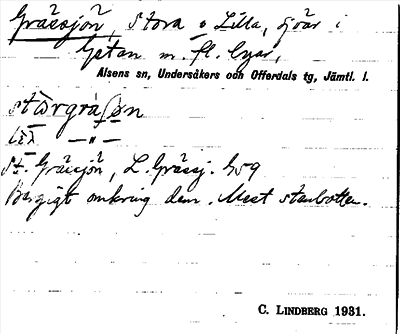 Grässjön, Stora o Lilla, sjöar i
Ystan m. fl. byar,
Alsens sn, Undersåkers och Offerdals tg, Jämtl. l.
—"—
St. Grässjön, L. Grässj. h59
Bergigt omkring dem. Mest stenbotten.
C. LINDBERG 1931.